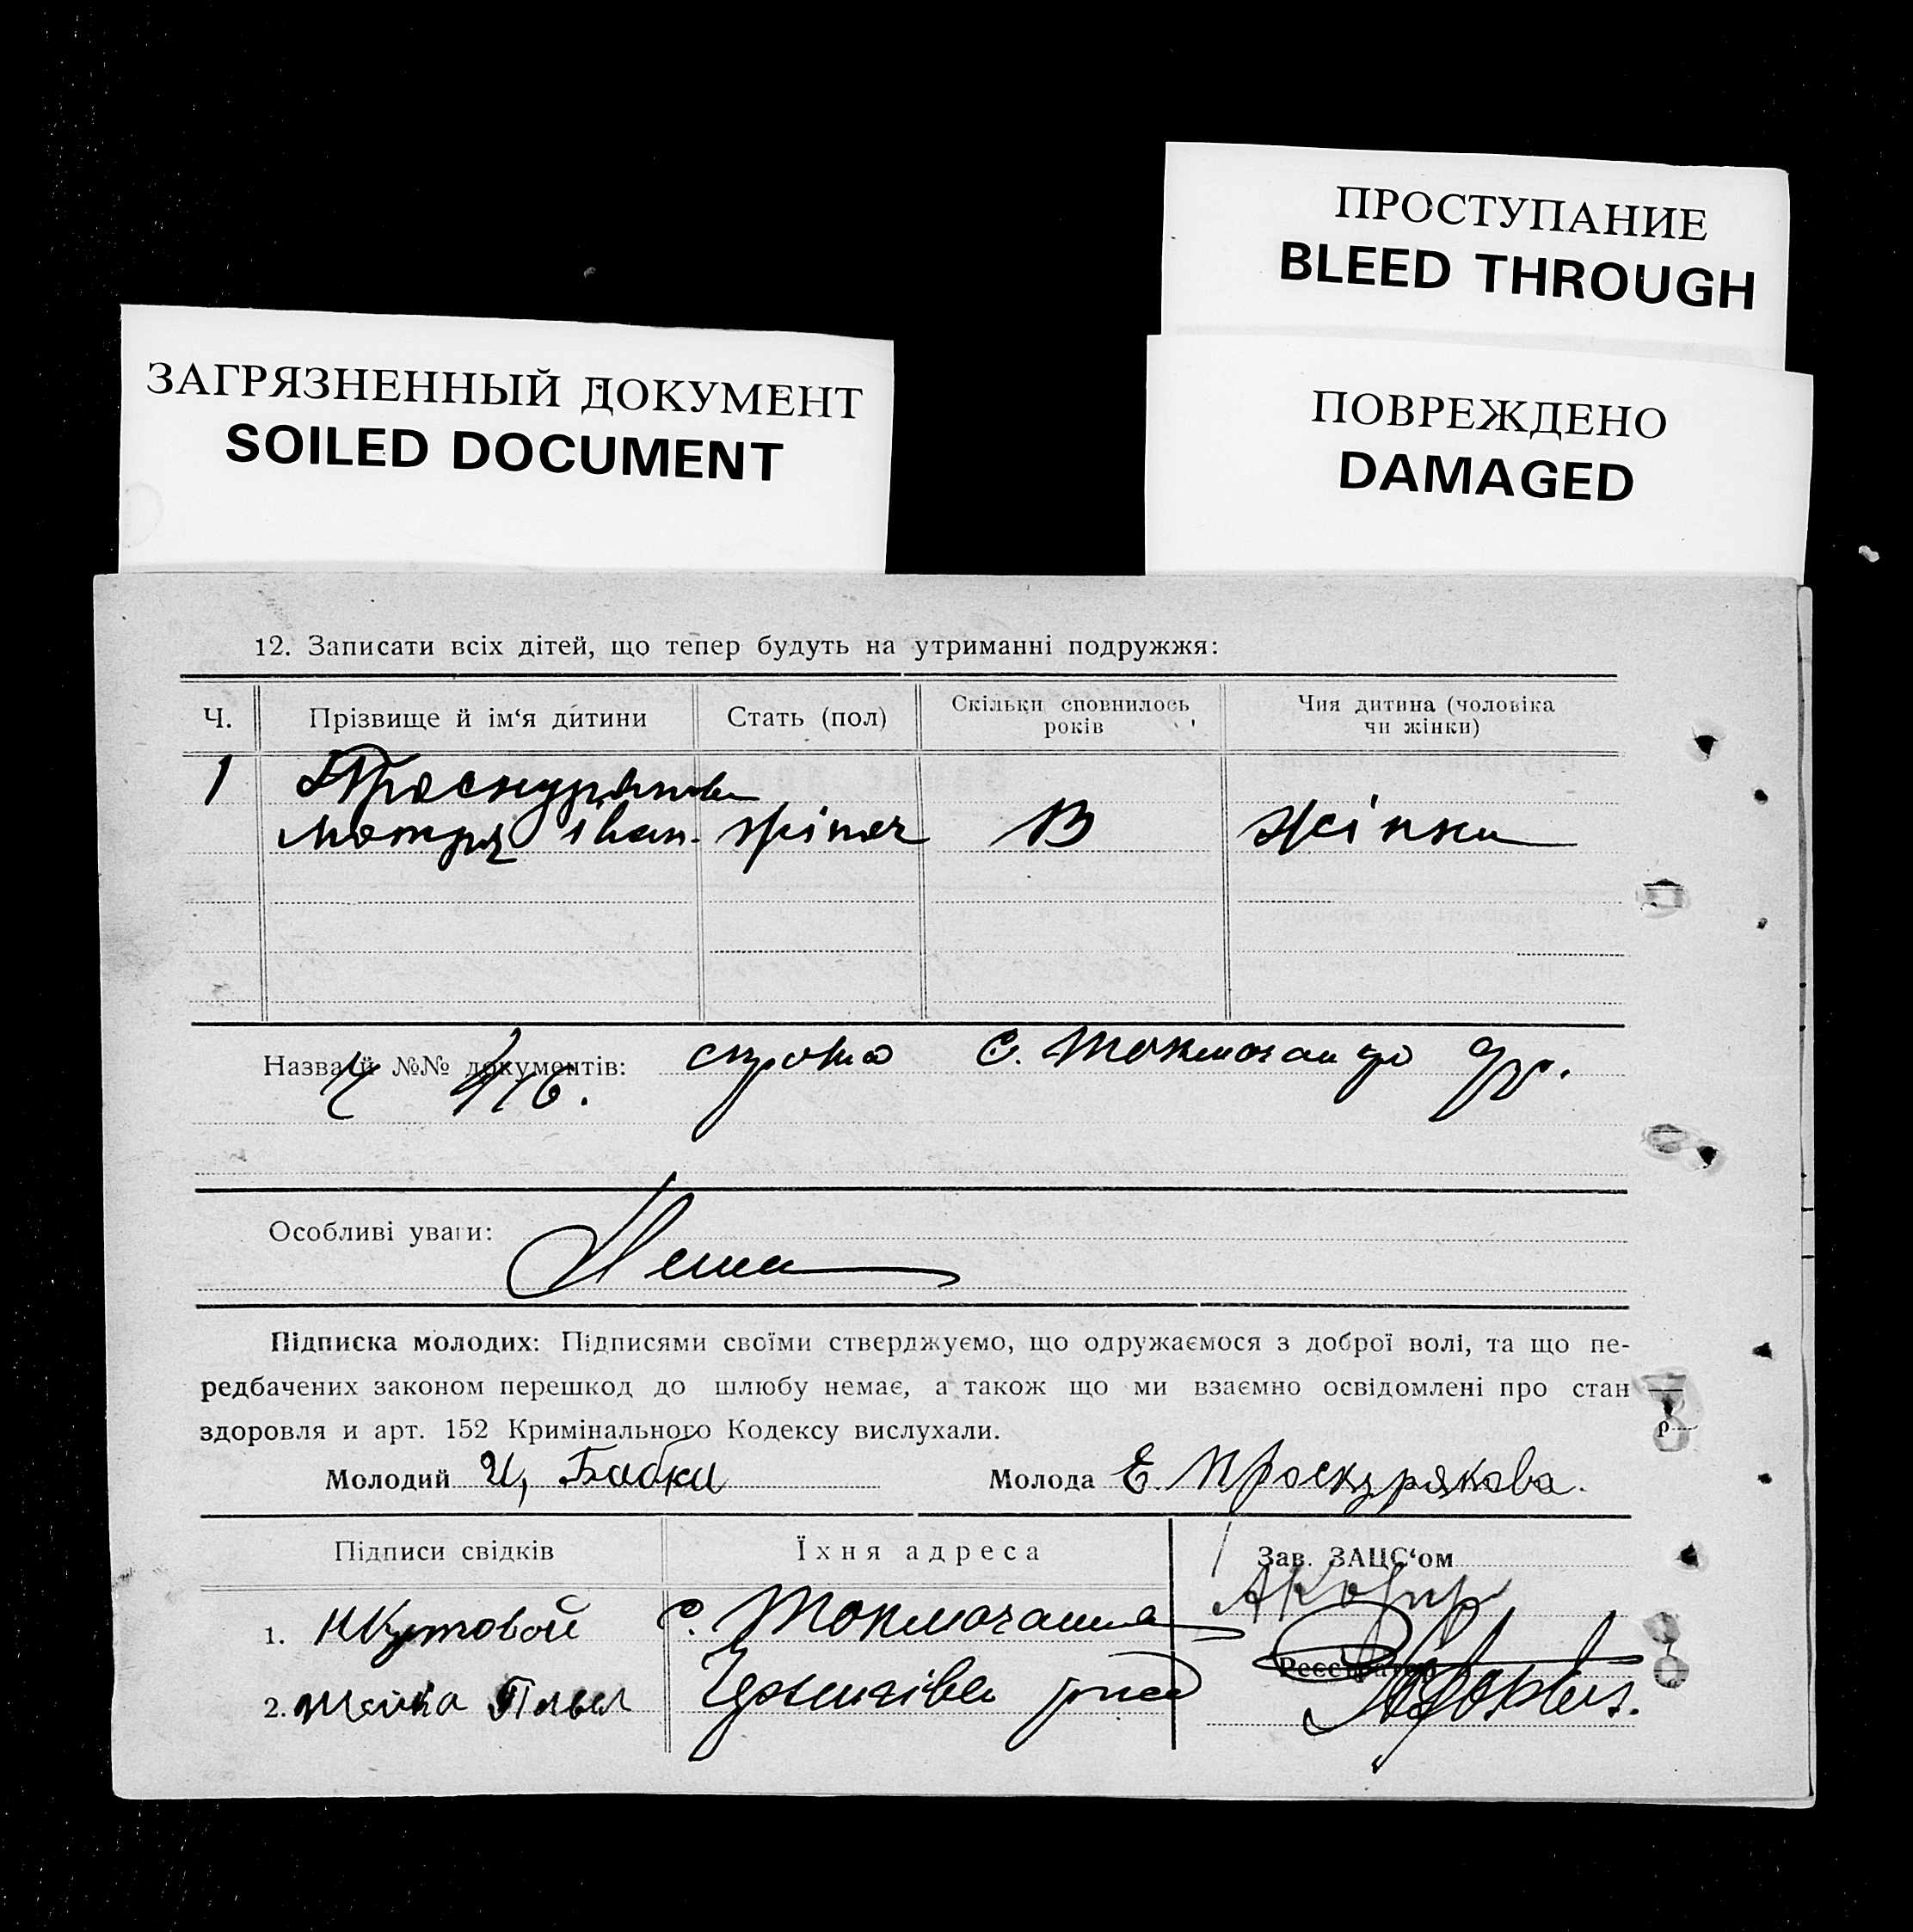 ПРОСТУПАНИЕ
BLEED THROUGH
ЗАГРЯЗНЕННЫЙ ДОКУМЕНТ
SOILED DOCUMENT
ПОВРЕЖДЕНО
DAMAGED
12. Записати всіх дітей, що тепер будуть на утриманні подружжя:
Ч. Прізвище й ім‘я дитини Стать (пол) Скільки сповнилось років Чия дитина (чоловіка чи жінки)
1 Проскурякова
Мотря Іван. жіноч 13 жінки
Назва й №№ документів: с. Токмачан
Ч
Особливі уваги: Нема
Підписка молодих: Підписями своїми стверджуємо, що одружаємося з доброї волі, та що пе-
редбачених законом перешкод до шлюбу немає, а також що ми взаємно освідомлені про стан
здоровля и арт. 152 Кримінального Кодексу вислухали.
р
Молодий И, Бабки Молода Е. Проскурякова.
Підписи свідків Їхня адреса Зав. ЗАЦС‘ом
1. Н Кутовой с. Токмачанка
Реєстратор
2. Павел